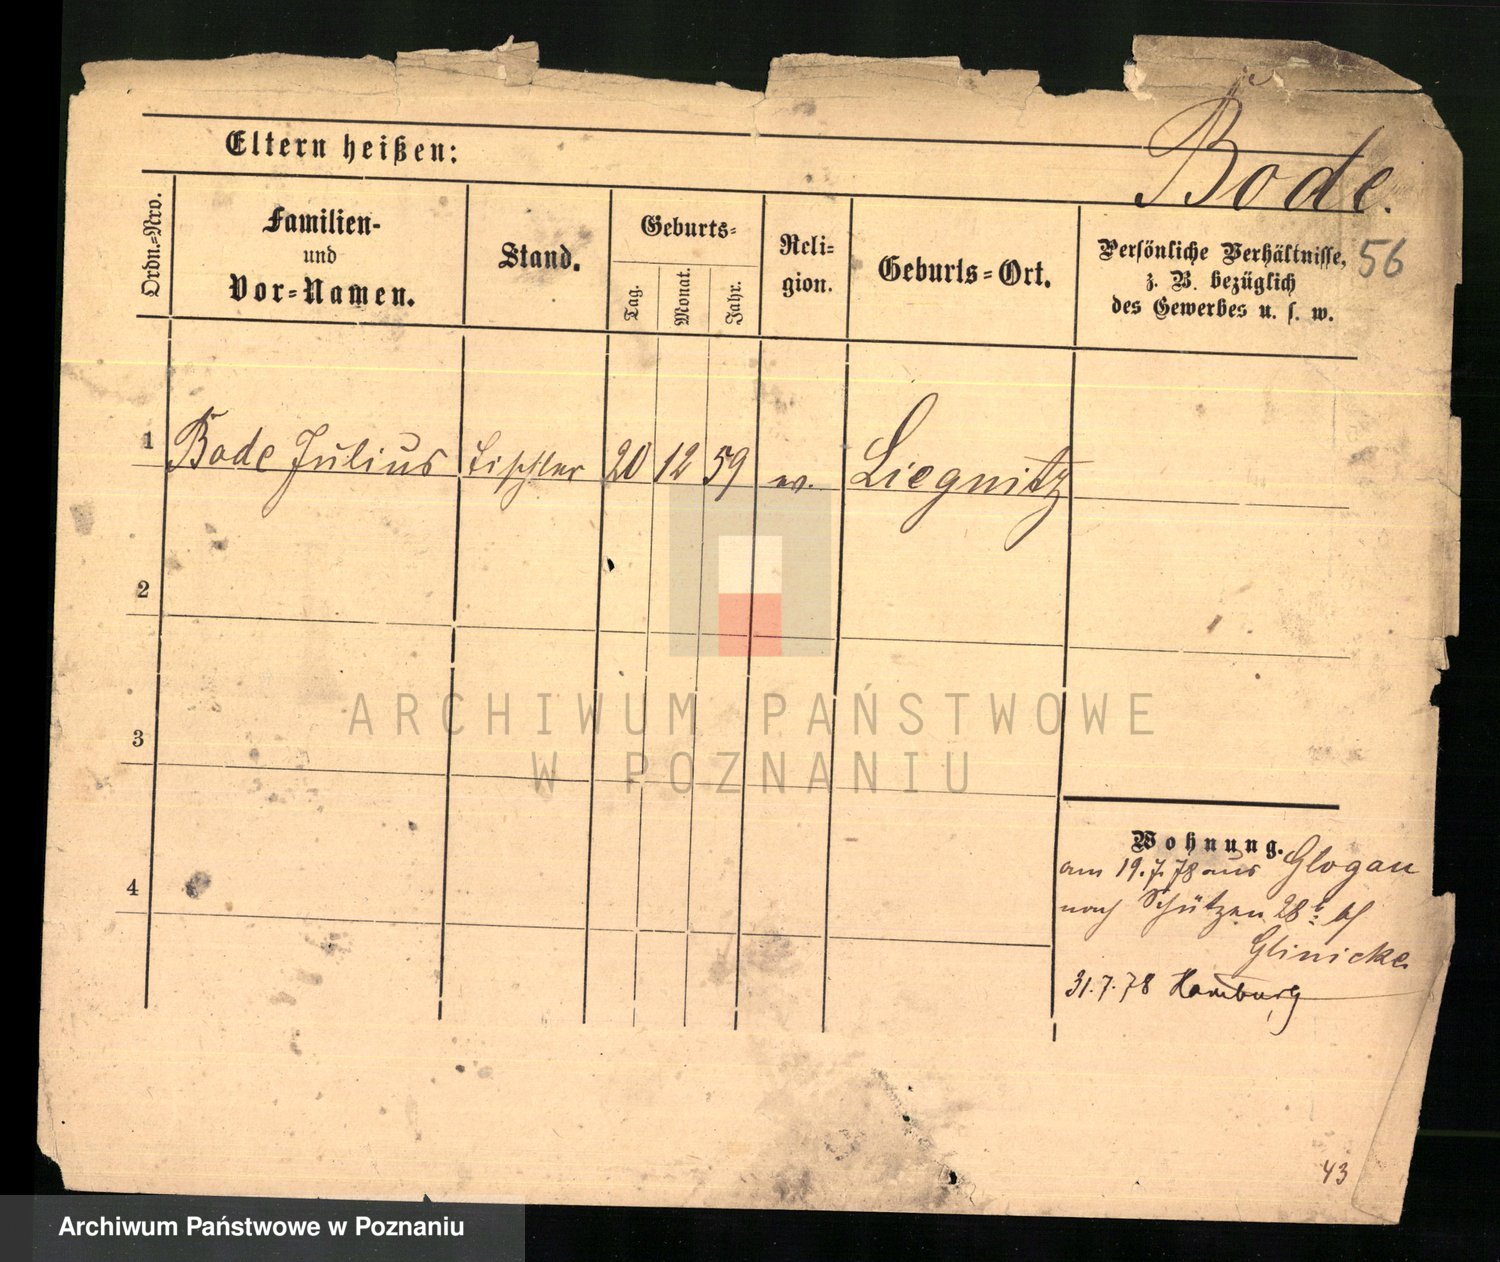 Bode.
Eltern heißen:
Ordn.=Nro.
Familien-
und
Vor=Namen.
Stand.
Geburts=
Tag.
Monat.
Jahr.
Reli=
gion.
Geburts=Ort.
Persönliche Verhältnisse,
z. B. bezüglich
des Gewerbes u. s. w.
56
1 Bode Julius Tischler 20 12 59 Liegnitz
2
3
4
Wohnung.
am 19.7.78 aus Glogau
nach Schützen 28
Glinicke
31.7.78 Hamburg
43
ARCHIWUM PAŃSTWOWE
W POZNANIU
Archiwum Państwowe w Poznaniu